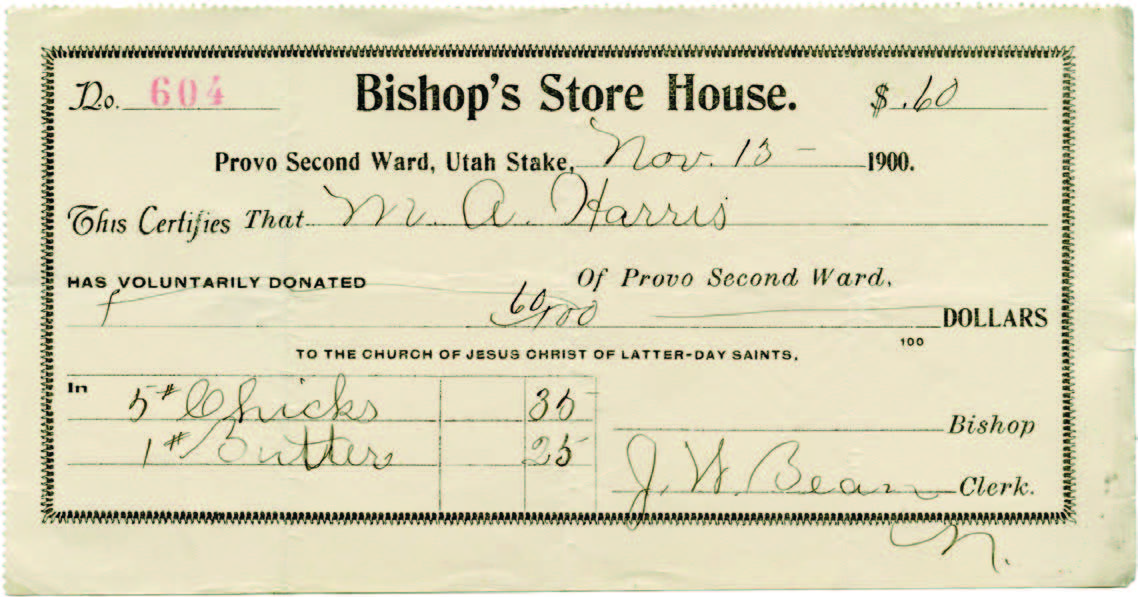 No. 604 Bishop's Store House. $ .60
Provo Second Ward, Utah Stake, Nov. 13 - 1900.
This Certifies That M. A. Harris
HAS VOLUNTARILY DONATED Of Provo Second Ward,
60/100 DOLLARS
100
TO THE CHURCH OF JESUS CHRIST OF LATTER-DAY SAINTS.
In 5# Chicks 35
Bishop
1# Butter 25
J. W. Bean Clerk.